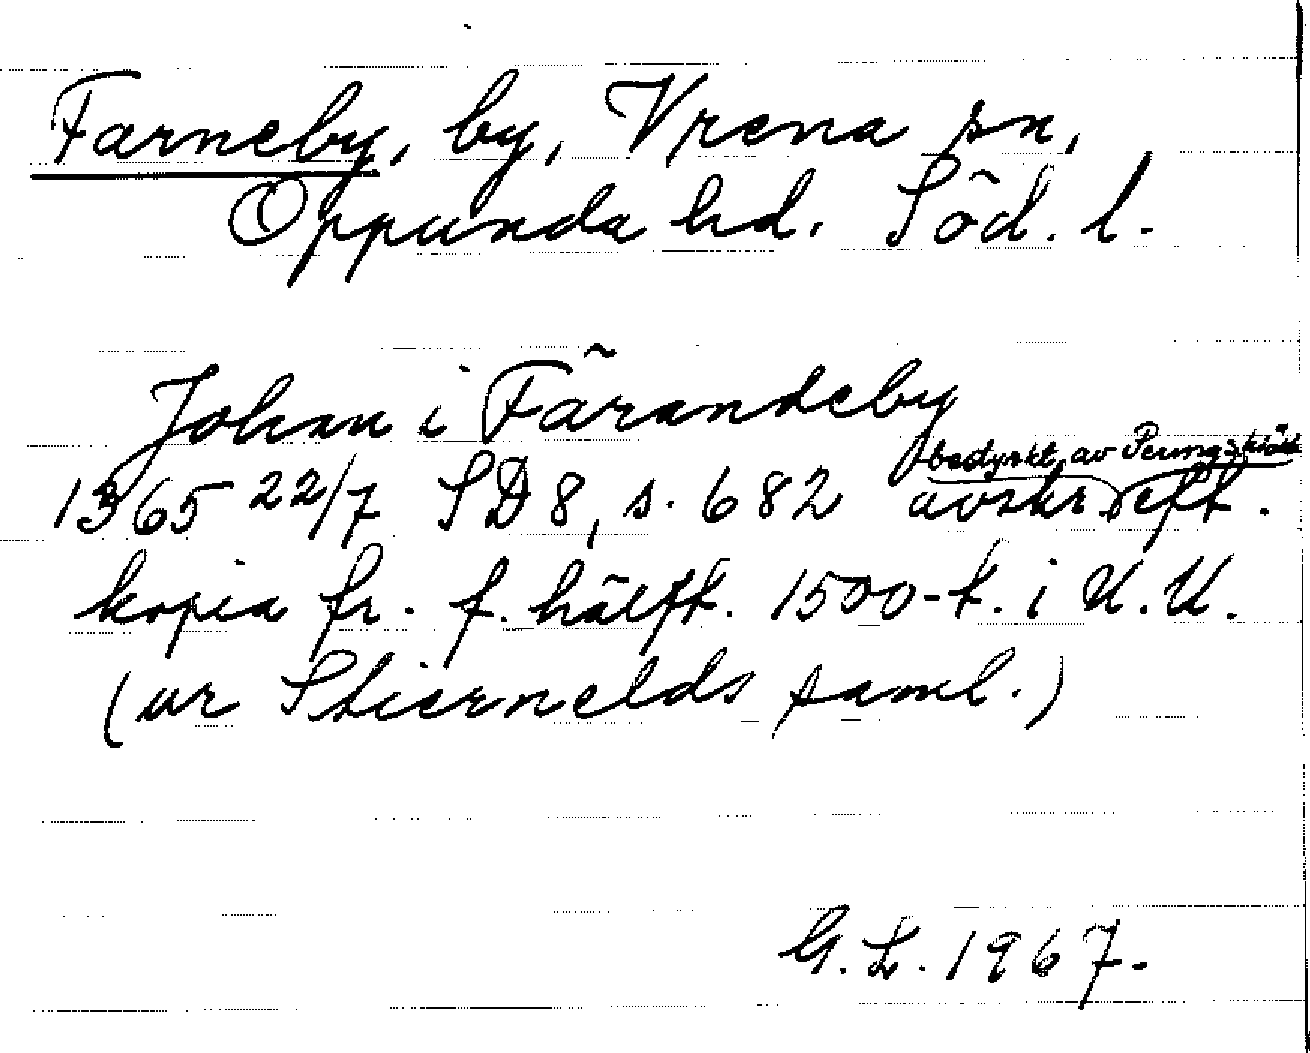 Farneby, by, Vrena sn,
Oppunda hd. Söd. l.
Johan i Färandeby
bedyrkt av Peringskiöld
1365 22/7 SD 8, s. 682 avskr. eft.
kopia fr. f. hälft. 1500-t. i U.U.
(ur Stiernelds saml.)
G. L. 1967.